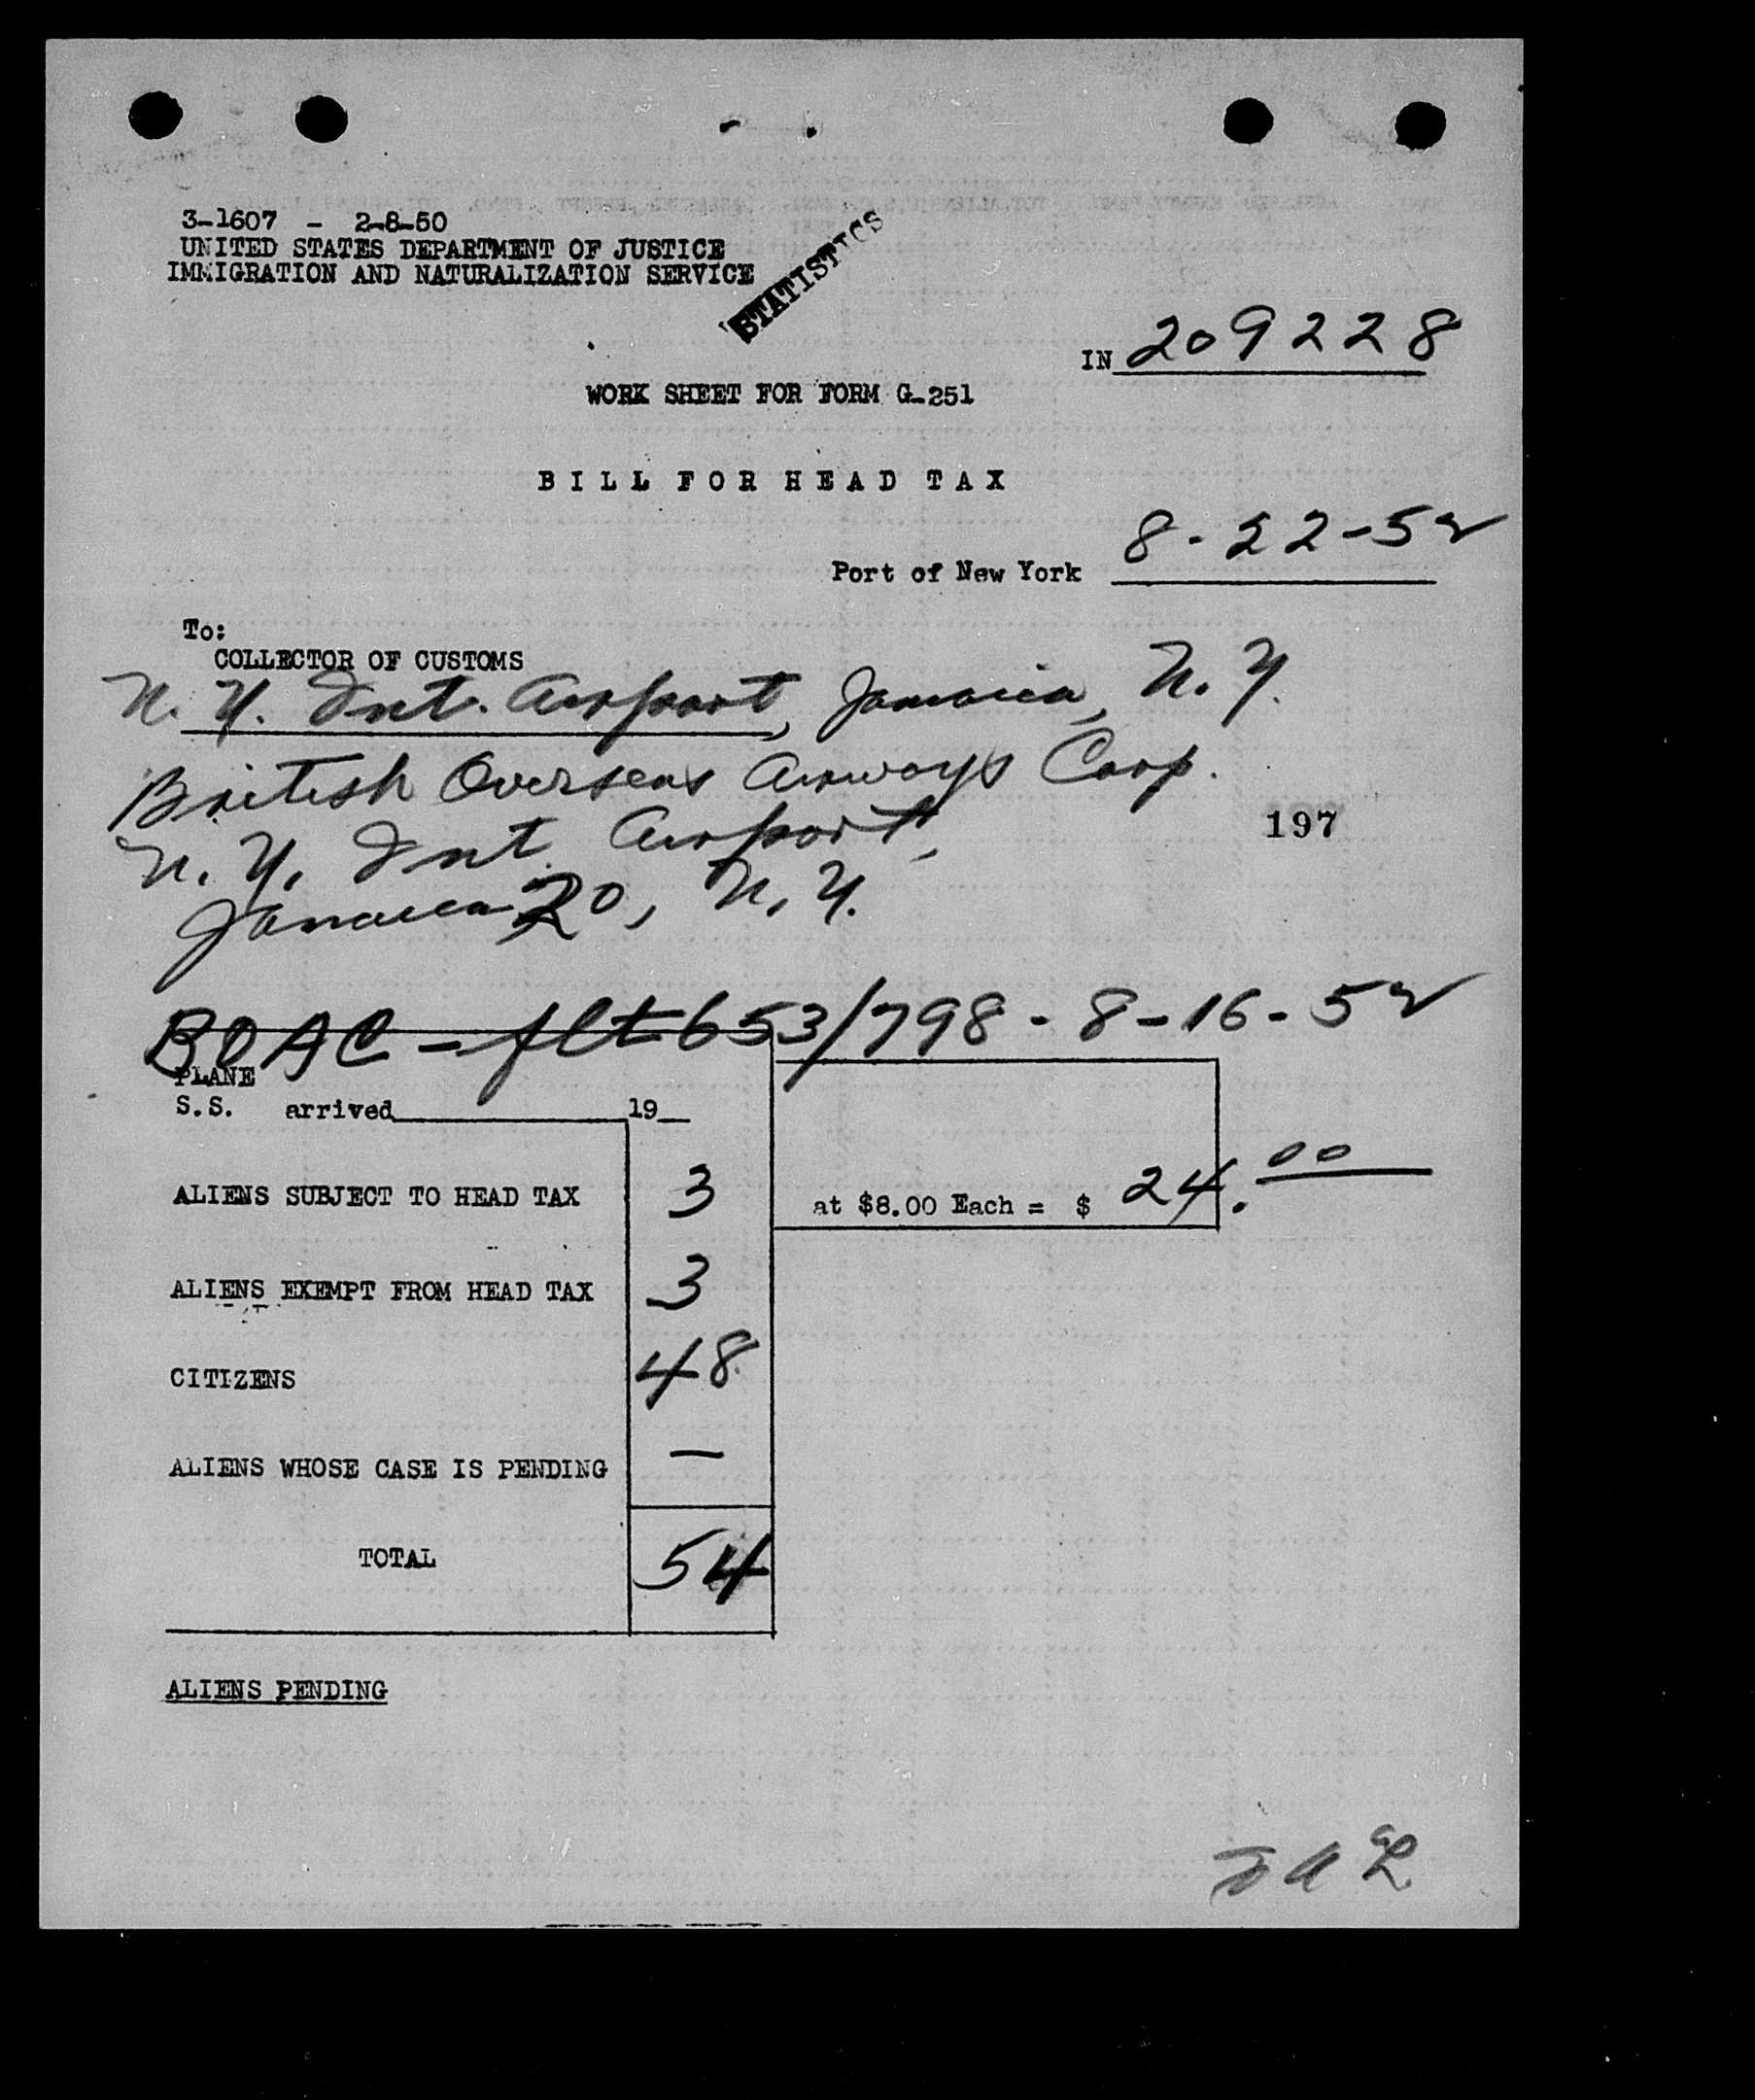 3-1607 - 2-8-50
UNITED STATES DEPARTMENT OF JUSTICE
IMMIGRATION AND NATURALIZATION SERVICE
STATISTICS
IN 209228
WORK SHEET FOR FORM G-251
BILL FOR HEAD TAX
8-22-52
Port of New York
To:
COLLECTOR OF CUSTOMS
N. Y. Int. Airport, Jamaica, N. Y.
British Overseas Airways Corp.
197
N. Y. Int. Airport,
Jamaica 20, N. Y.
BOAC - flt 653/798 - 8-16-52
PLANE
S.S. arrived 19
ALIENS SUBJECT TO HEAD TAX 3 at $8.00 Each = $ 24.00
ALIENS EXEMPT FROM HEAD TAX 3
CITIZENS 48
ALIENS WHOSE CASE IS PENDING —
TOTAL 54
ALIENS PENDING